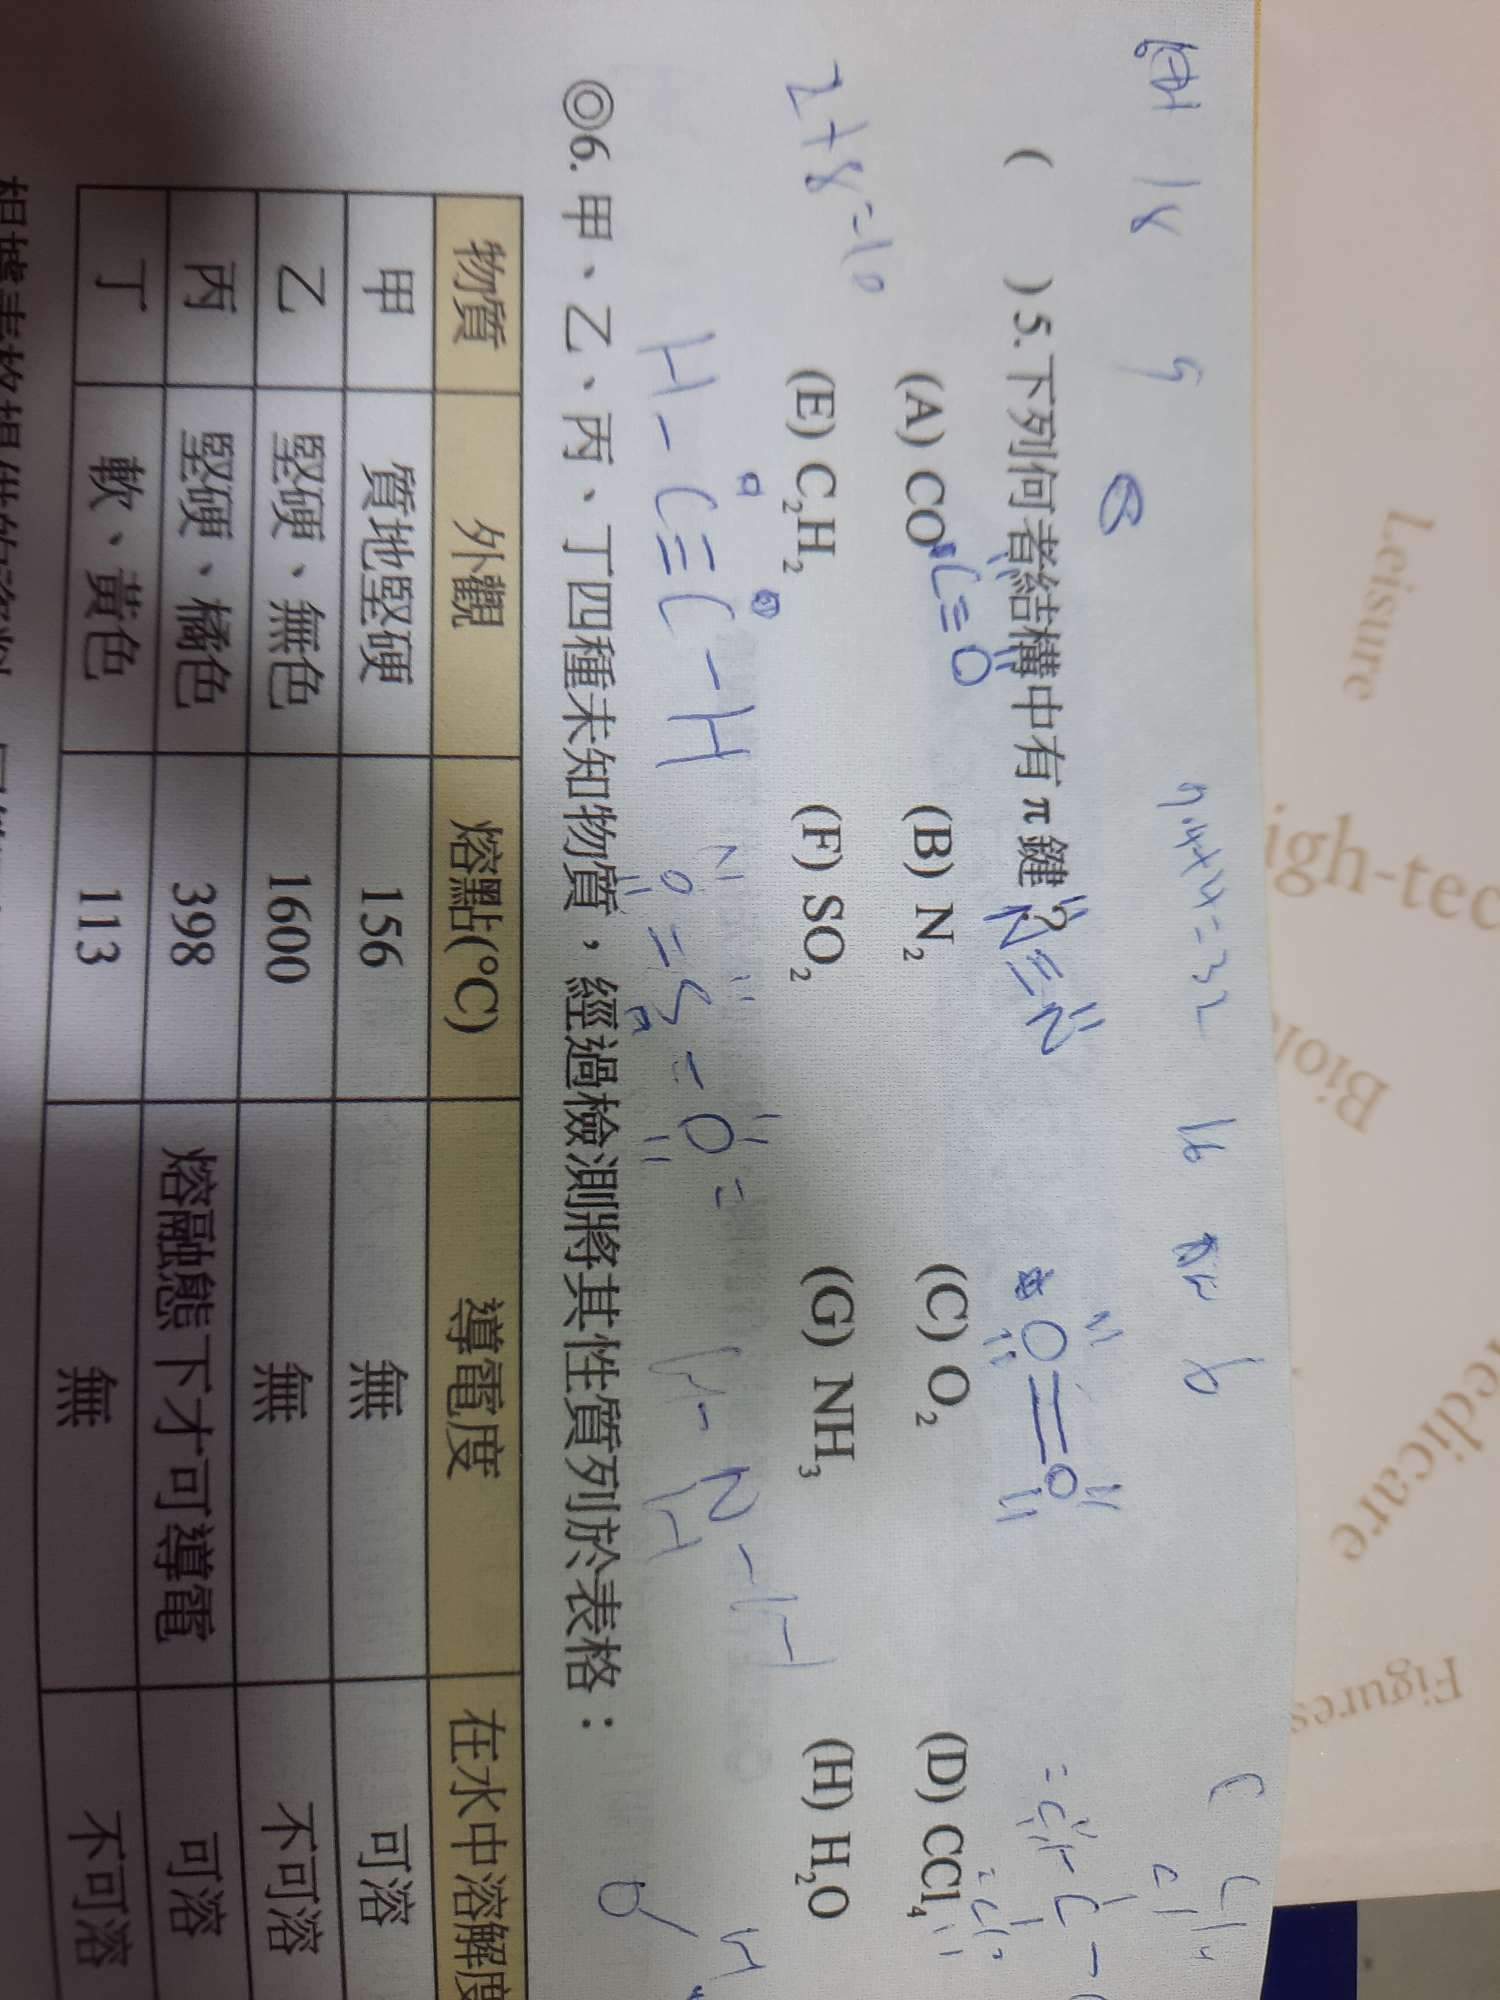 Leisure
igh-tec
Biolo
edicare
Figures
18
7.4+4=32
16
6
( ) 5.下列何者結構中有π鍵?
N≡N
O=O
(A) CO
C≡O
(B) N₂
(C) O₂
(D) CCl₄
2+8=10
(E) C₂H₂
(F) SO₂
(G) NH₃
(H) H₂O
H-C≡C-H
O=S-O
H-N-H
H
◎6. 甲、乙、丙、丁四種未知物質,經過檢測將其性質列於表格:
物質 外觀 熔點(°C) 導電度 在水中溶解度
甲 質地堅硬 156 無 可溶
乙 堅硬、無色 1600 無 不可溶
丙 堅硬、橘色 398 熔融態下才可導電 可溶
丁 軟、黃色 113 無 不可溶